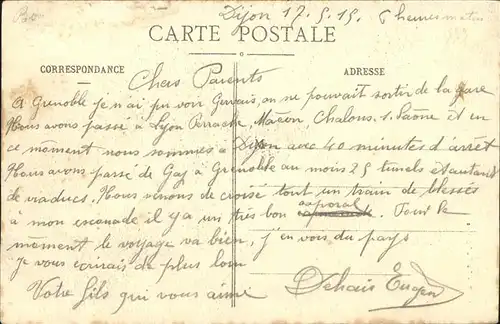 Dijon 17.5.15 6 heures matin
CARTE POSTALE
CORRESPONDANCE
ADRESSE
Chers Parents
A Grenoble je n'ai pu voir Gervais, on ne pouvait sortir de la gare
Nous avons passé à Lyon Perrache, Macon Chalons s. Saône et en
ce moment nous sommes à Dijon avec 40 minutes d'arrêt
Nous avons passé de Gap à Grenoble au moins 25 tunels et autant
de viaducs. Nous venons de croisé tout un train de blessés
à mon escouade il y a un très bon caporal. Pour le
moment le voyage va bien, j'en vois du pays
Je vous écrirais de plus loin
Votre fils qui vous aime
Dehais Eugène